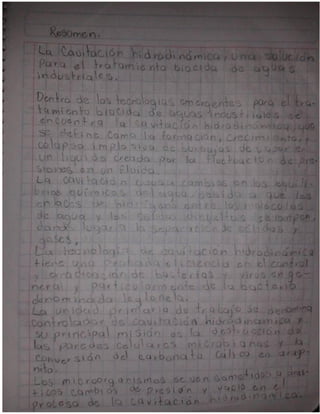 Resumen:
La Cavitación hidrodinámica, una solución
Para el tratamiento biocida de aguas
industriales.
Dentro de las tecnologías emergentes para el tra-
tamiento biocida de aguas industriales se
encuentra la cavitación hidrodinámica, que
se define como la formación, crecimiento, y
colapso implosivo de burbujas de vapor en
un líquido creada por la fluctuación de pre-
siones en un fluido.
La cavitación causa cambios en los equili-
brios químicos del agua debido a que los
enlaces de hidrógeno entre las moléculas
de agua y los solutos disueltos se rompen,
dando lugar a la separación de sólidos y
gases.
La tecnología de cavitación hidrodinámica
tiene una probada eficiencia en el control
y eradicación de bacterias y virus en ge-
neral y particularmente de la bacteria
denominada legionela.
La unidad primaria de trabajo se denomina
controlador de cavitación hidrodinámica y
su principal misión es la destrucción de
las paredes celulares microbianas y la
conversión del carbonato cálcico en arago-
nito.
Los microorganismos se ven sometidos a drás-
ticos cambios de presión y vacío en el
proceso de la cavitación hidrodinámica.